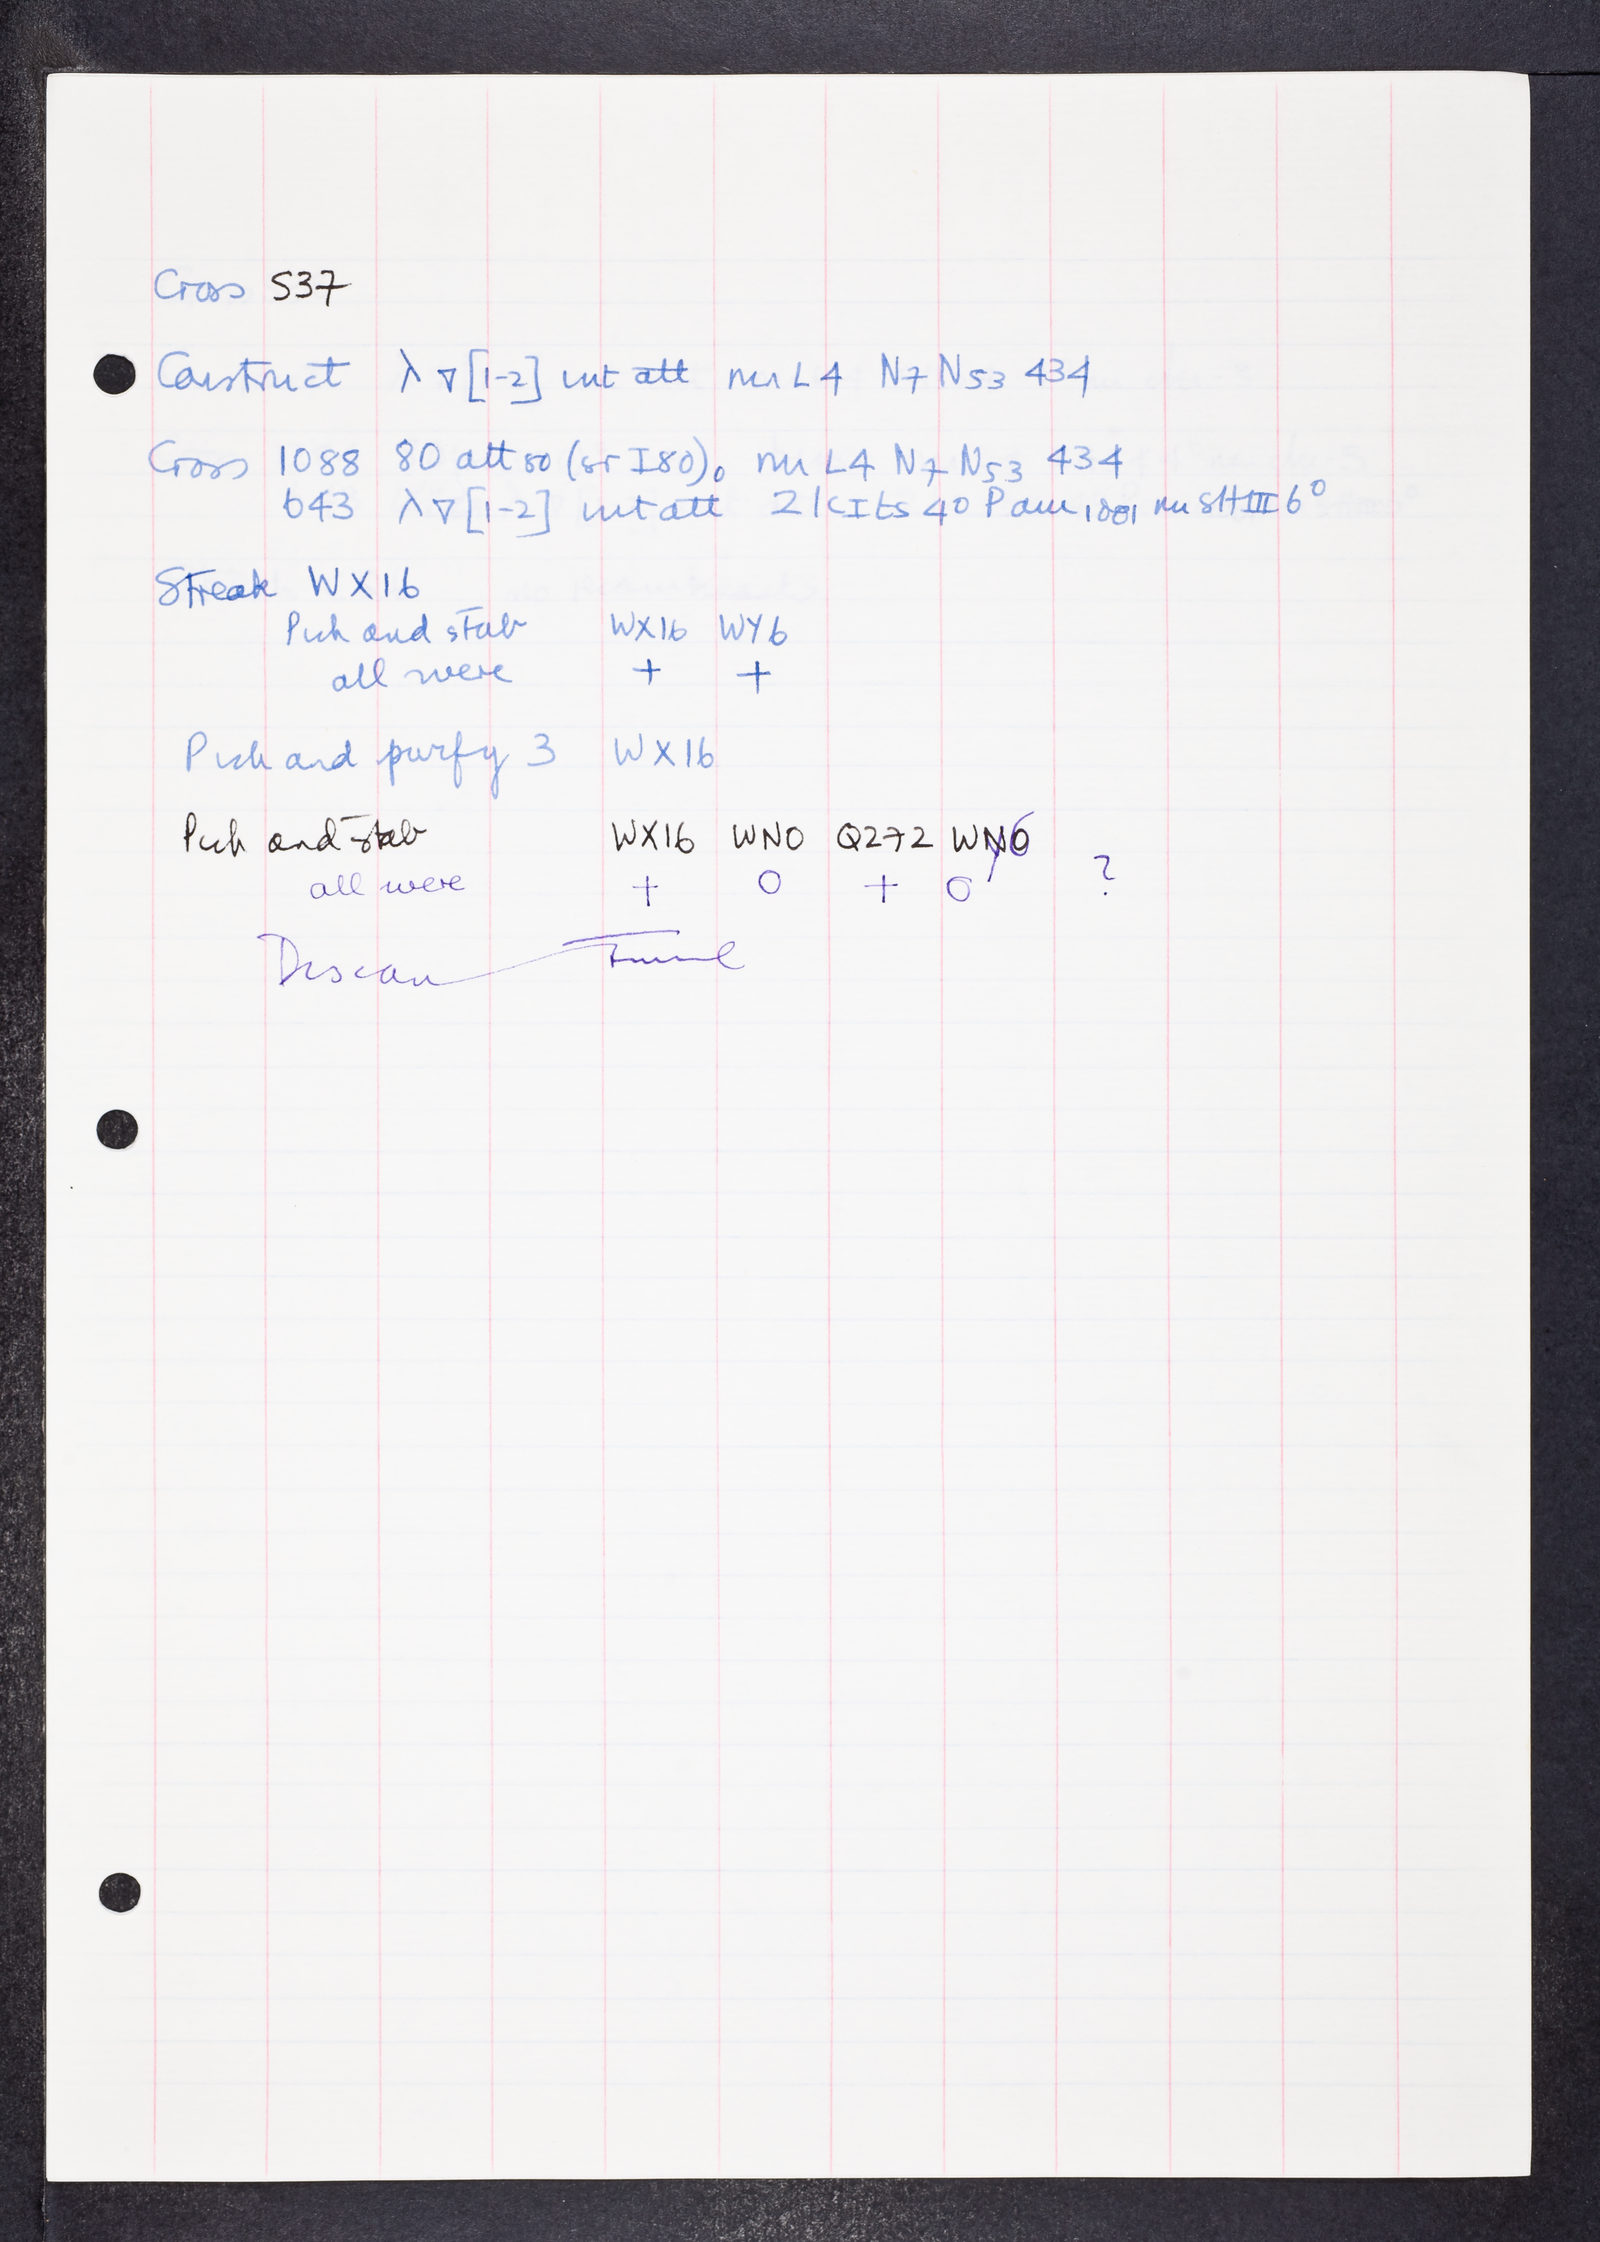 Cross S37
Construct λ ∇[1-2] int att nin L4 N7 N53 434
Cross 1088 80 att 80 (sr I80)0 nin L4 N7 N53 434
643 λ ∇[1-2] int att 21 cIts 40 Pam 1081 nin SHIII 6°
Streak WX16
Pick and stab WX16 WY6
all were + +
Pick and purfy 3 WX16
Pick and stab WX16 WN0 Q272 WY6
all were + 0 + 0 ?